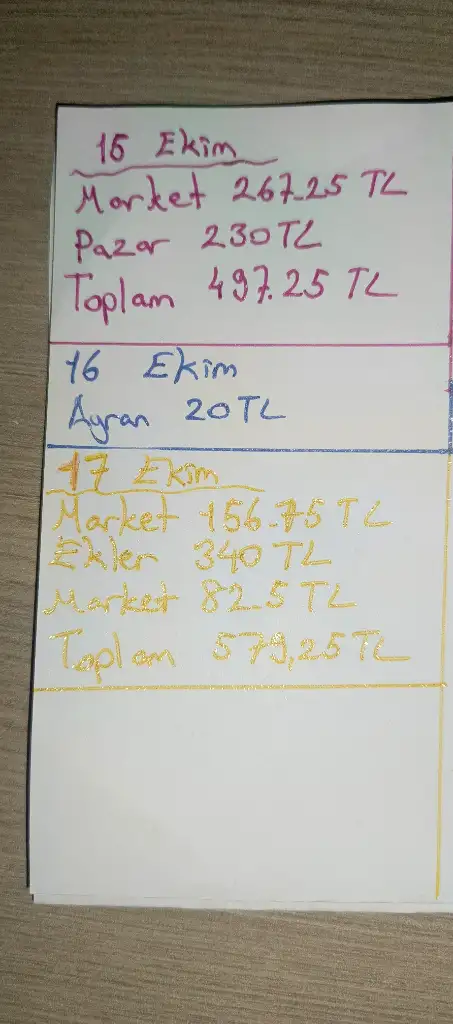 15 Ekim
Market 267.25 TL
Pazar 230 TL
Toplam 497.25 TL
16 Ekim
Ayran 20 TL
17 Ekim
Market 156.75 TL
Ekler 340 TL
Market 82.5 TL
Toplam 579,25 TL